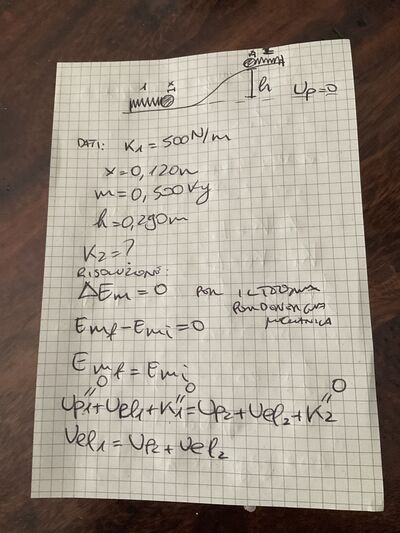 1
h
Up=0
DATI: K1=500N/m
x=0,120m
m=0,500Kg
h=0,290m
K2=?
RISOLUZIONE:
ΔEm=0 PER IL TEOREMA
MECCANICA
Emf-Emi=0
Emf=Emi
0 0 0
Up1+Uel1+K1=Up2+Uel2+K2
Uel1=Up2+Uel2